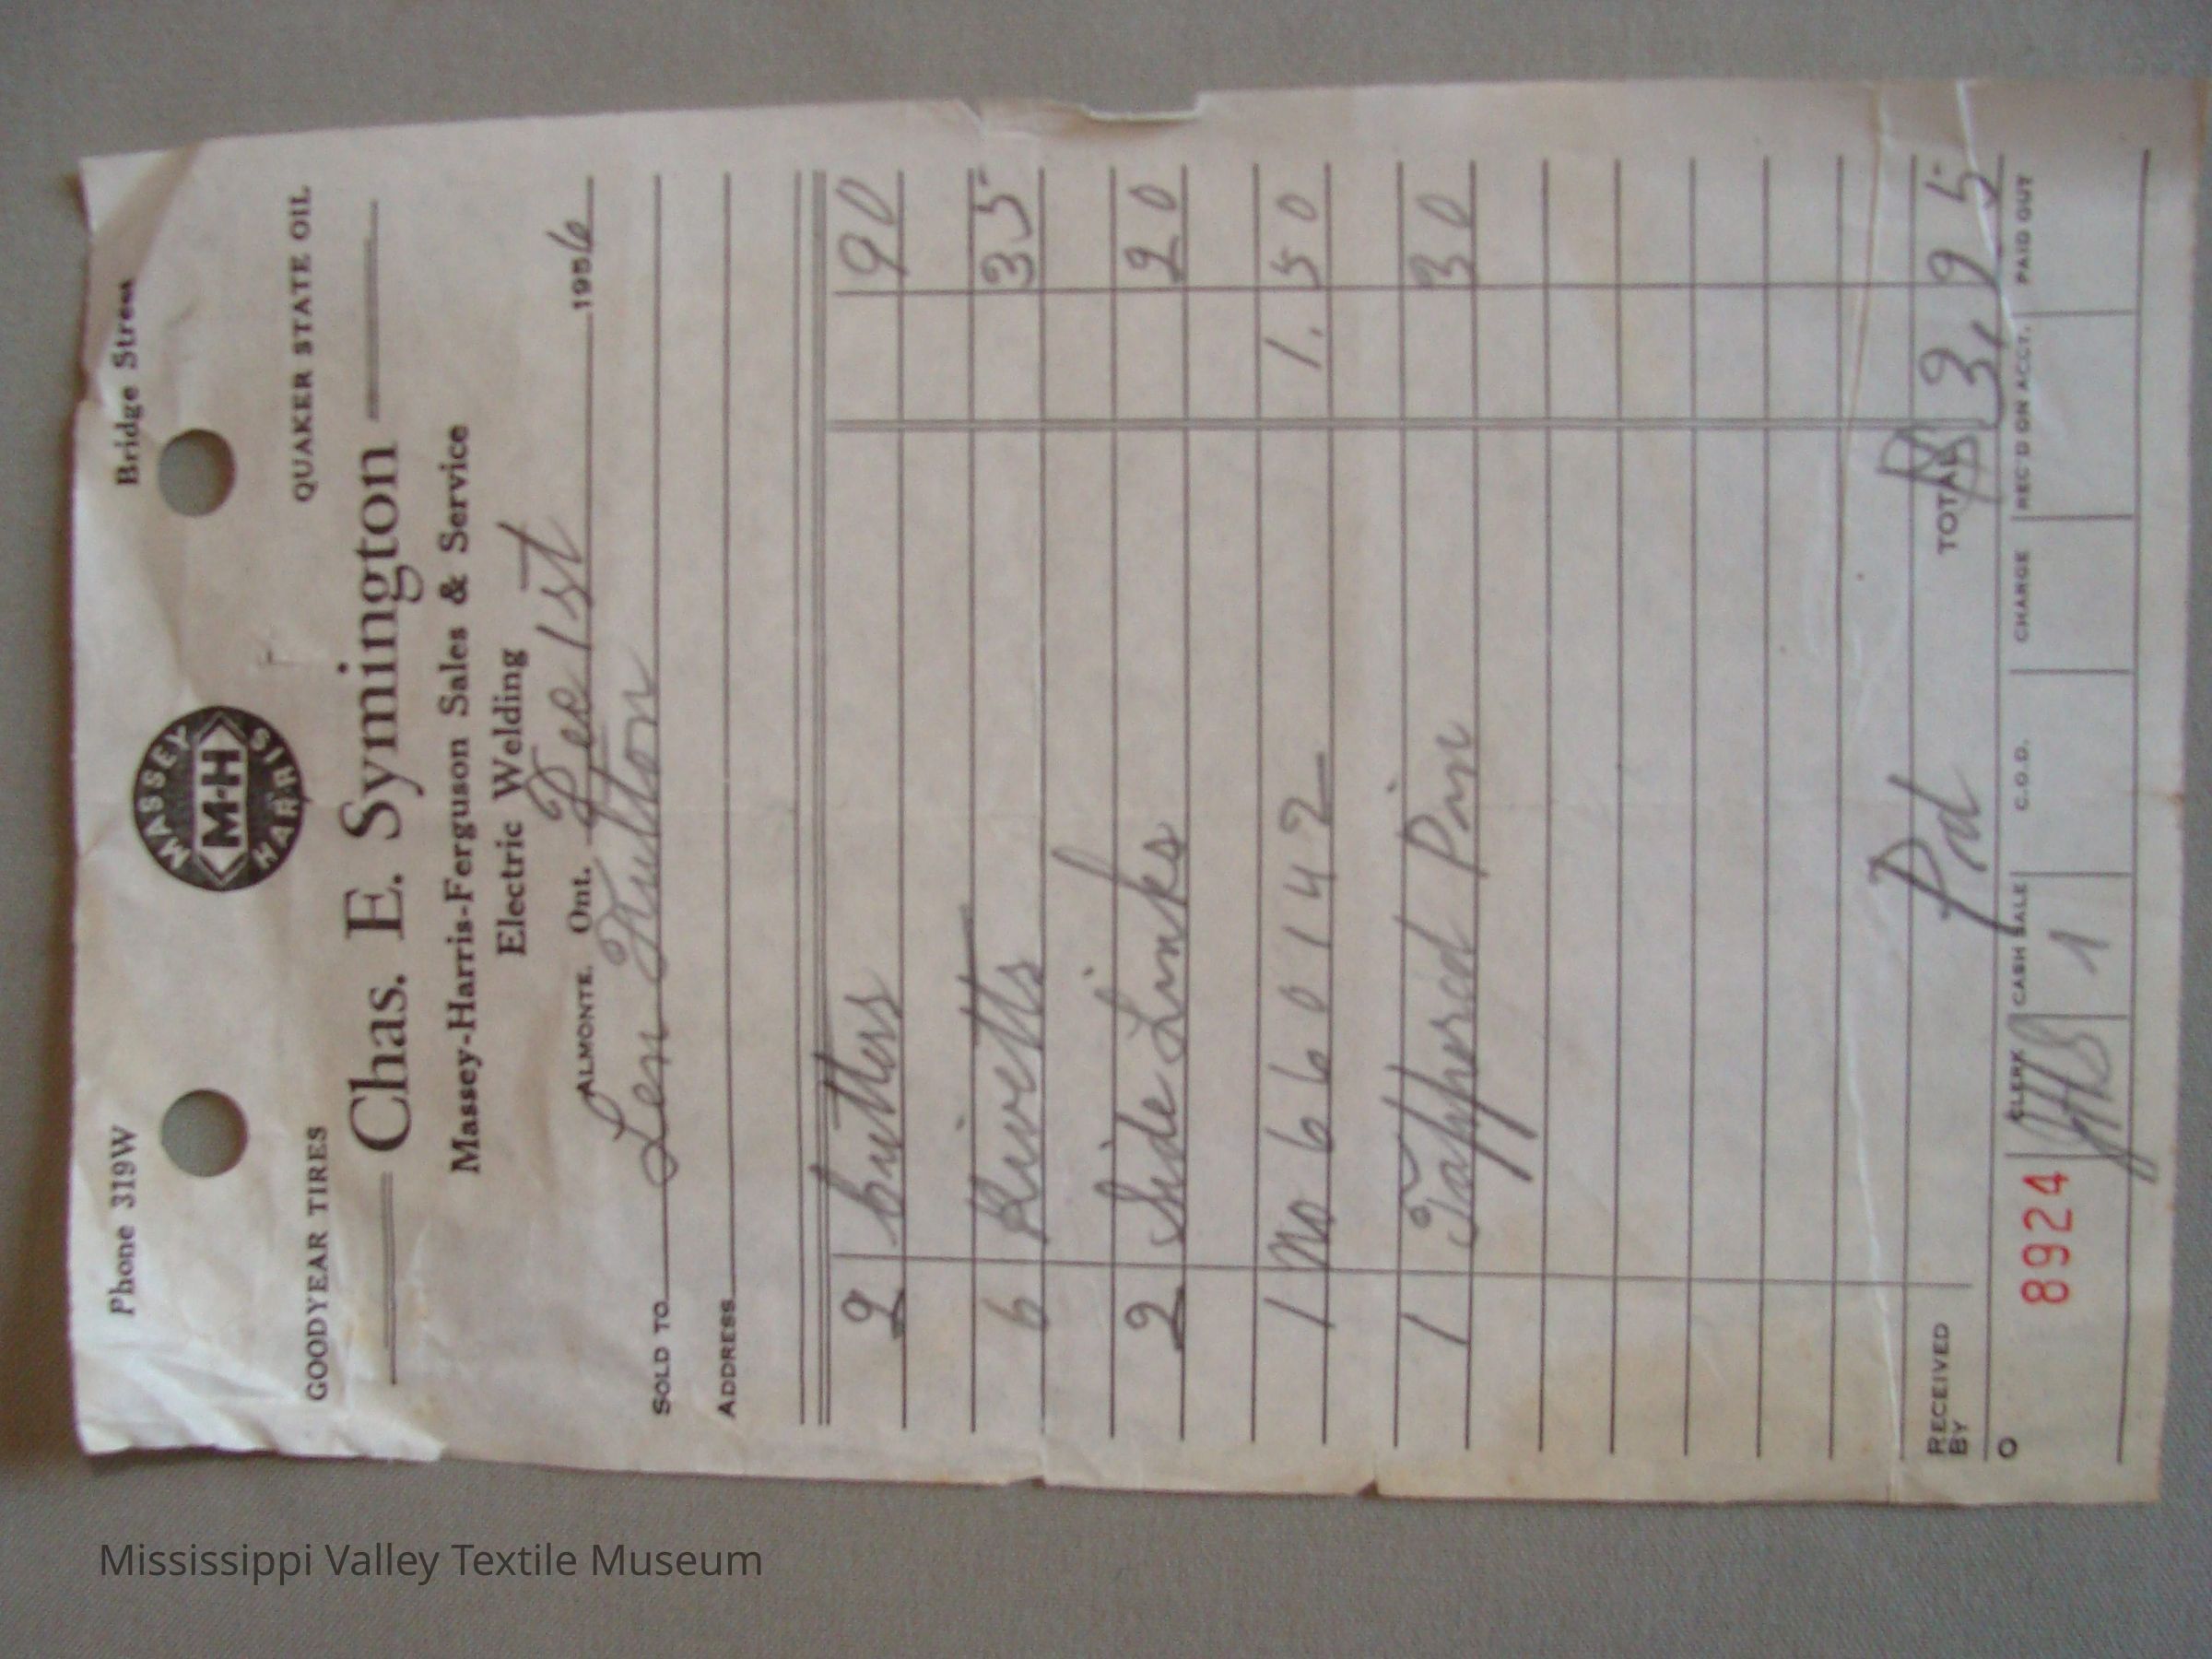 Phone 319W Bridge Street
MASSEY
M-H
HARRIS
GOODYEAR TIRES QUAKER STATE OIL
Chas. E. Symington
Massey-Harris-Ferguson Sales & Service
Electric Welding
ALMONTE, Ont. 1st 1956
SOLD TO Len Fulton
ADDRESS
2 Cutters 90
6 Rivetts 35
2 Side Links 90
1 No 660142 1.50
1 Tapphered Pin 30
Pd
RECEIVED BY TOTAL $3.95
O 8924 CLERK CASH SALE C.O.D. CHARGE REC'D ON ACCT. PAID OUT
1
Mississippi Valley Textile Museum